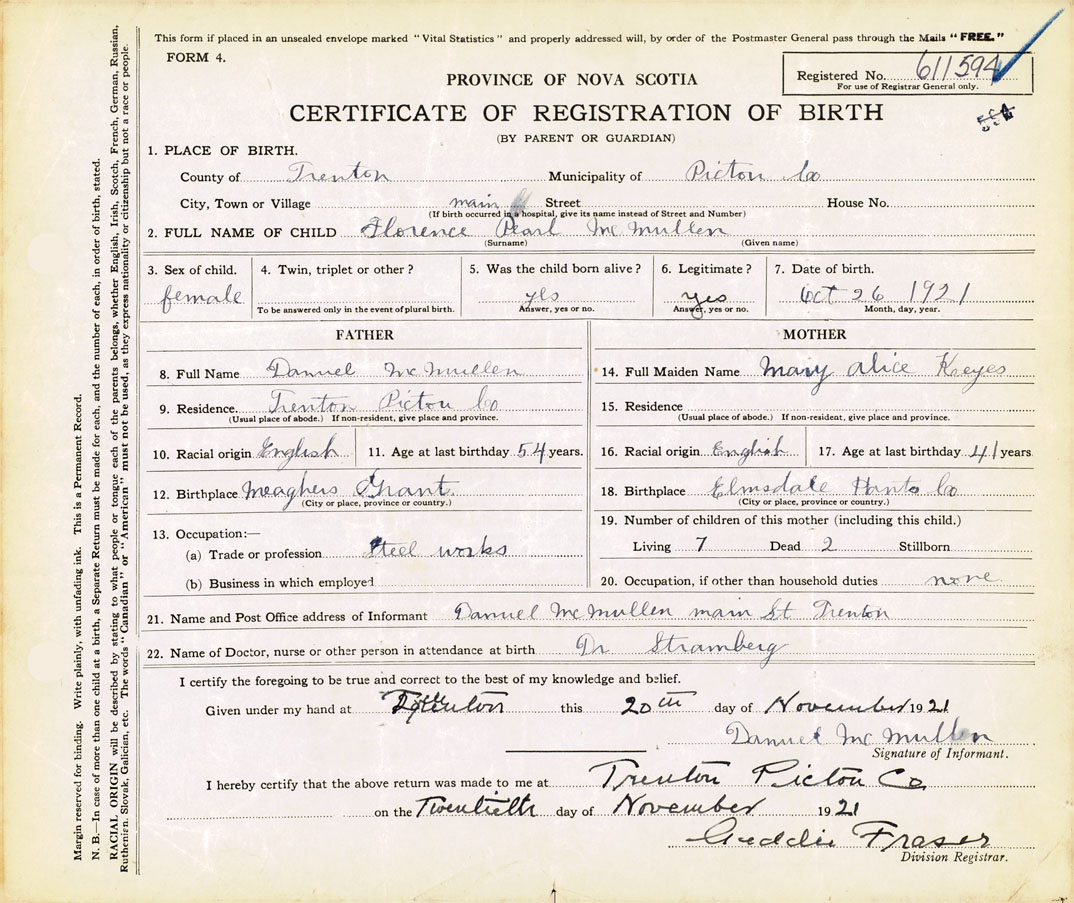 This form if placed in an unsealed envelope marked "Vital Statistics" and properly addressed will, by order of the Postmaster General pass through the Mails "FREE."
FORM 4.
Registered No. 611594
For use of Registrar General only.
PROVINCE OF NOVA SCOTIA
CERTIFICATE OF REGISTRATION OF BIRTH
(BY PARENT OR GUARDIAN)
1. PLACE OF BIRTH.
County of Trenton Municipality of Picton Co
City, Town or Village main Street House No.
(If birth occurred in a hospital, give its name instead of Street and Number)
2. FULL NAME OF CHILD Florence Pearl McMullen
(Surname) (Given name)
3. Sex of child. 4. Twin, triplet or other? 5. Was the child born alive? 6. Legitimate? 7. Date of birth.
female yes yes Oct 26 1921
To be answered only in the event of plural birth. Answer, yes or no. Answer, yes or no. Month, day, year.
FATHER
8. Full Name Danuel McMullen
9. Residence. Trenton Picton Co
(Usual place of abode.) If non-resident, give place and province.
10. Racial origin English 11. Age at last birthday 54 years.
12. Birthplace Meaghers Grant.
(City or place, province or country.)
13. Occupation:—
(a) Trade or profession Steel works
(b) Business in which employed
MOTHER
14. Full Maiden Name Mary Alice Keyes
15. Residence
(Usual place of abode.) If non-resident, give place and province.
16. Racial origin English 17. Age at last birthday 41 years
18. Birthplace Elmsdale Hants Co
(City or place, province or country.)
19. Number of children of this mother (including this child.)
Living 7 Dead 2 Stillborn
20. Occupation, if other than household duties none
21. Name and Post Office address of Informant Danuel McMullen main St Trenton
22. Name of Doctor, nurse or other person in attendance at birth Dr Stramberg
I certify the foregoing to be true and correct to the best of my knowledge and belief.
Given under my hand at Trenton this 20th day of November 1921
Danuel McMullen
Signature of Informant.
I hereby certify that the above return was made to me at Trenton Picton Co
on the Twentieth day of November 1921
Fraser
Division Registrar.
Margin reserved for binding. Write plainly, with unfading ink. This is a Permanent Record.
N. B.—In case of more than one child at a birth, a Separate Return must be made for each, and the number of each, in order of birth, stated.
RACIAL ORIGIN will be described by stating to what people or tongue each of the parents belongs, whether English, Irish, Scotch, French, German, Russian,
Ruthenian, Slovak, Galician, etc. The words "Canadian" or "American" must not be used, as they express nationality or citizenship but not a race or people.